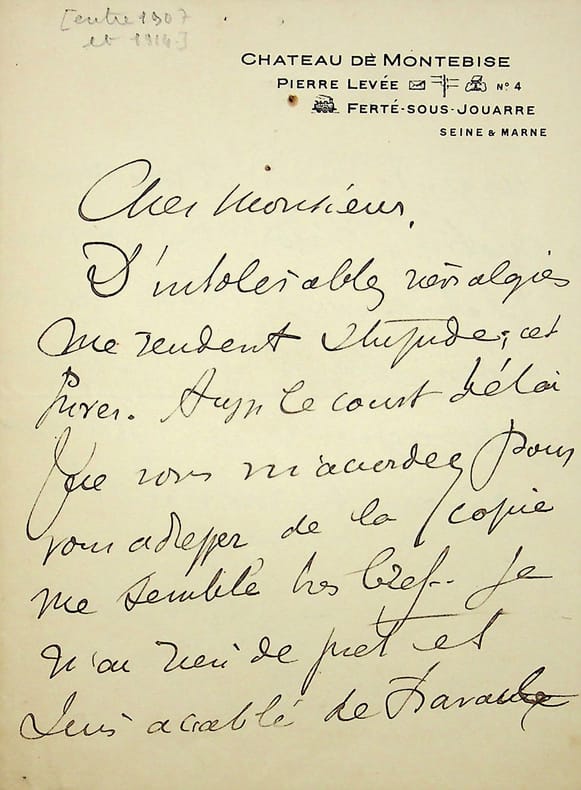 [entre 1907
et 1914]
CHATEAU DE MONTEBISE
PIERRE LEVÉE N° 4
FERTÉ-SOUS-JOUARRE
SEINE & MARNE
Cher Monsieur,
D'intolérables névralgies
me rendent stupide, cet
hiver. Aussi le court délai
que vous m'accordez pour
vous adresser de la copie
me semble très bref.. Je
n'ai rien de prêt et
suis accablé de travaux